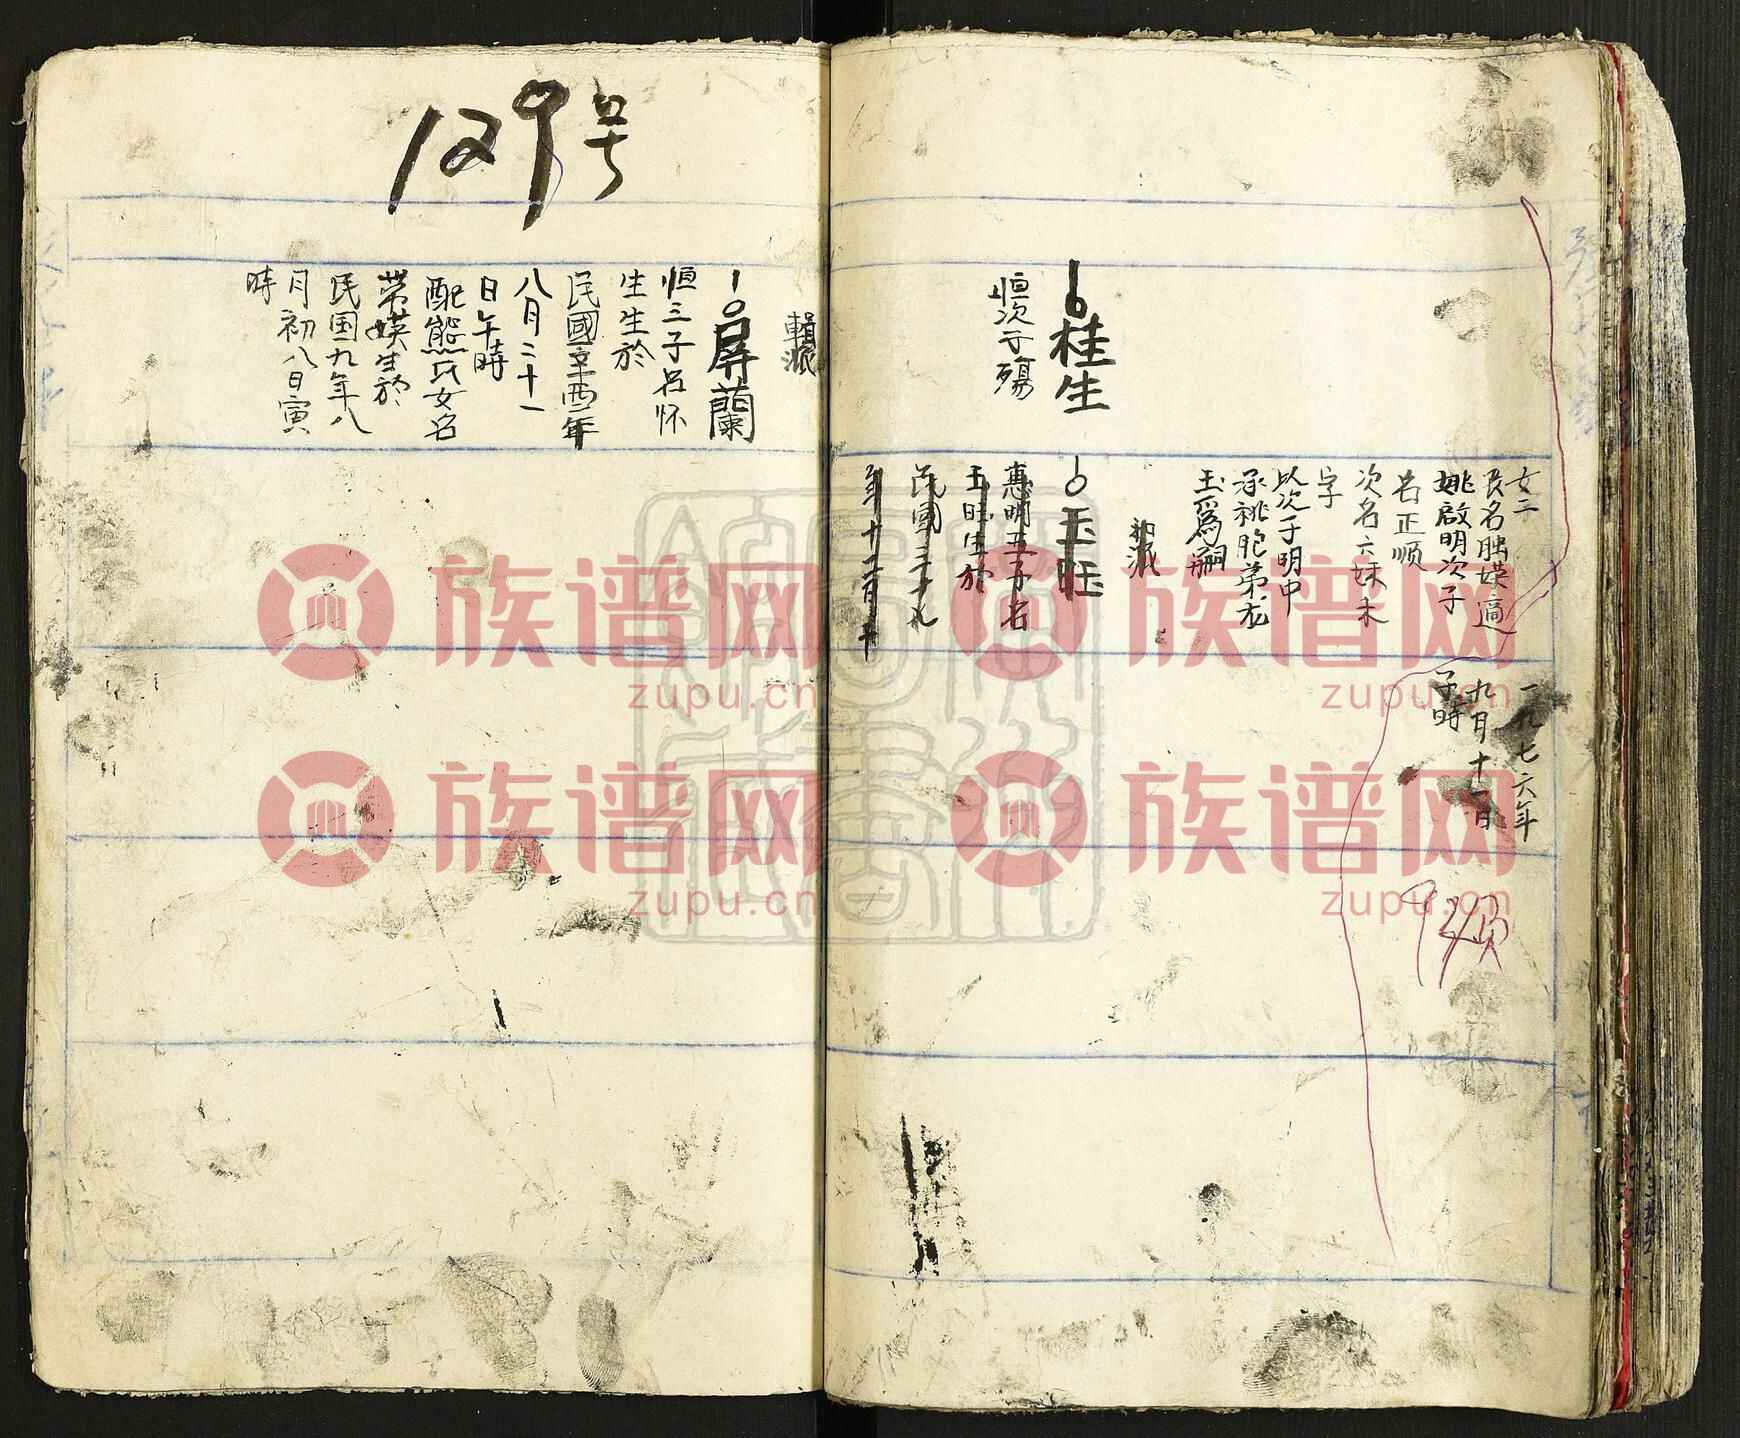 桂生
恒次子殤
女二
長名𦙶媖適
姚啟明次子
名正順
次名六妹未
字
以次子明中
承祧胞弟龙
玉爲嗣
派
玉旺
惠明五子名
玉旺生於
民國三十九
年十二月十
一九七六年
九月十一日
子時
129号
輯派
屏蘭
恒三子名怀
生生於
民國辛酉年
八月二十一
日午時
配熊氏女名
帯媖生於
民国九年八
月初八日寅
時
族谱网
zupu.cn
族谱网
zupu.cn
族谱网
zupu.cn
族谱网
zupu.cn